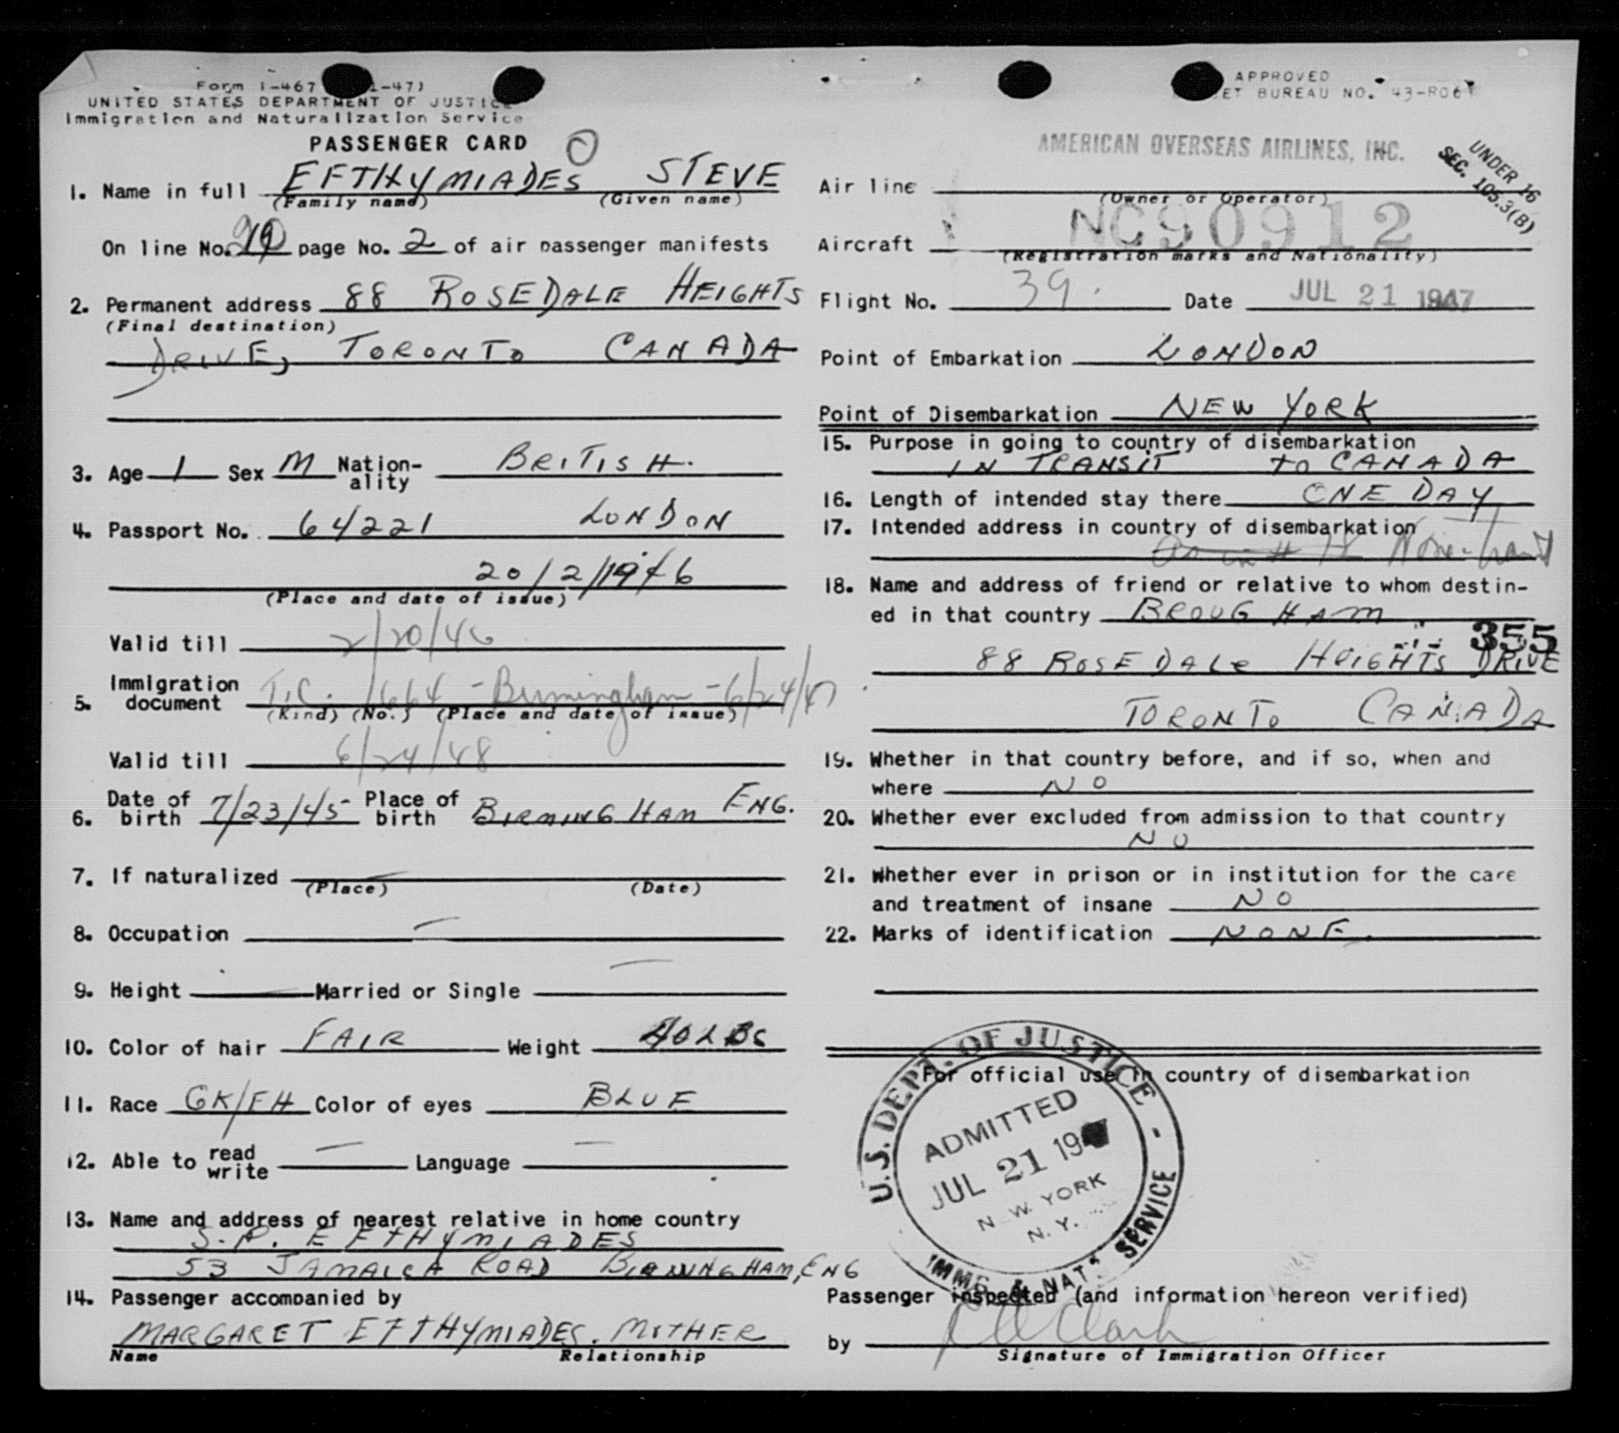 Form I-467 1-47)
UNITED STATES DEPARTMENT OF JUSTICE
Immigration and Naturalization Service
PASSENGER CARD
1. Name in full EFTHYMIADES STEVE
(Family name) (Given name)
On line No. page No. 2 of air passenger manifests
2. Permanent address 88 ROSEDALE HEIGHTS
(Final destination)
DRIVE, TORONTO CANADA
3. Age 1 Sex M Nation-ality BRITISH.
4. Passport No. 64221 LONDON
20/2/1946
(Place and date of issue)
Valid till 2/20/46
5. Immigration document T.C. 1664 - Birmingham - 6/24/47
(Kind) (No.) (Place and date of issue)
Valid till 6/24/48
6. Date of birth 7/23/45 Place of birth BIRMINGHAM ENG.
7. If naturalized
(Place) (Date)
8. Occupation —
9. Height Married or Single —
10. Color of hair FAIR Weight 40 LBS
11. Race GK/FH Color of eyes BLUE
12. Able to read write — Language —
13. Name and address of nearest relative in home country
S.P. EFTHYMIADES
53 JAMAICA ROAD BIRMINGHAM, ENG
14. Passenger accompanied by
MARGARET EFTHYMIADES. MOTHER
Name Relationship
APPROVED
ET BUREAU NO. 43-R067
AMERICAN OVERSEAS AIRLINES, INC.
UNDER 16
SEC. 105.3(B)
Air line
(Owner or Operator)
Aircraft NC90912
(Registration marks and Nationality)
Flight No. 39. Date JUL 21 1947
Point of Embarkation LONDON
Point of Disembarkation NEW YORK
15. Purpose in going to country of disembarkation
IN TRANSIT TO CANADA
16. Length of intended stay there ONE DAY
17. Intended address in country of disembarkation
18. Name and address of friend or relative to whom destin-
ed in that country BROUGHAM
355
88 ROSEDALE HEIGHTS DRIVE
TORONTO CANADA
19. Whether in that country before, and if so, when and
where NO
20. Whether ever excluded from admission to that country
NO
21. Whether ever in prison or in institution for the care
and treatment of insane NO
22. Marks of identification NONE.
For official use in country of disembarkation
U.S. DEPT. OF JUSTICE -
ADMITTED
JUL 21 19
N W. YORK
N.Y.
IMMG. & NAT. SERVICE
Passenger inspected (and information hereon verified)
by Clark
Signature of Immigration Officer